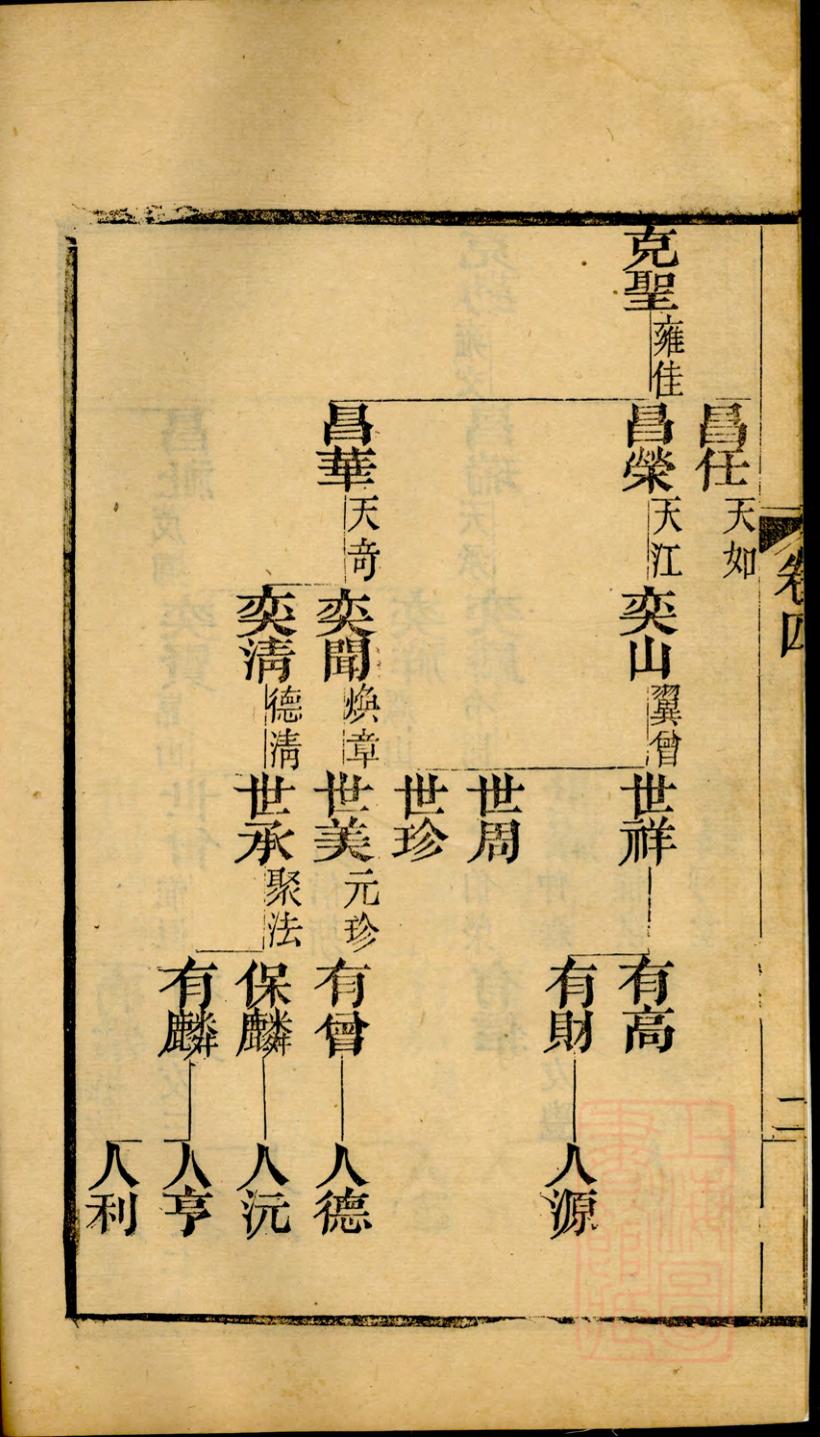 卷四
二
昌任 天如
克聖 雍佳
昌榮 天江
奕山 翼曾
世祥
有高
有財
人源
世周
世珍
昌華 天奇
奕聞 煥章
世美 元珍
有曾
人德
奕淸 德淸
世承 聚法
保麟
人沅
有麟
人亨
人利
上海圖書館藏